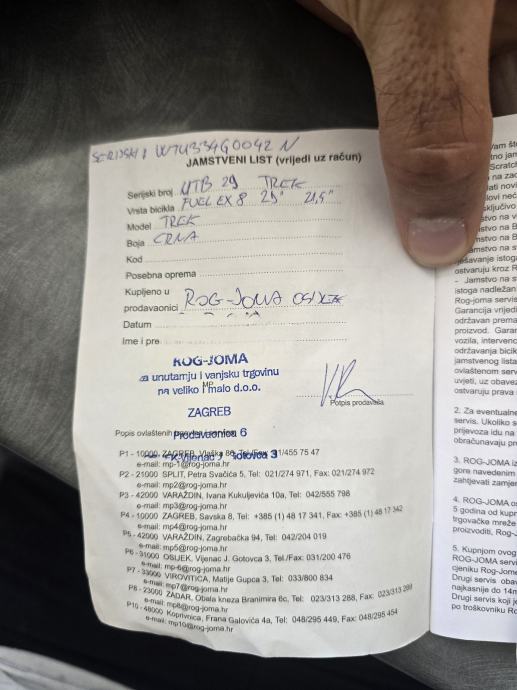 SERIJSKI: WTU334G0042 N
JAMSTVENI LIST (vrijedi uz račun)
Serijski broj MTB 29 TREK
Vrsta bicikla FUEL EX 8 29" 21,5"
Model TREK
Boja CRNA
Kod
Posebna oprema
Kupljeno u
prodavaonici ROG-JOMA OSIJEK
Datum
Ime i pre
ROG-JOMA
za unutarnju i vanjsku trgovinu
na veliko i malo d.o.o.
MP
ZAGREB
Potpis prodavača
Popis ovlaštenih
Prodavaonica 6
P1 - 10000 ZAGREB, Vlaška 80, Tel./Fax: 01/455 75 47
e-mail: mp-1@rog-joma.hr
P2 - 21000 SPLIT, Petra Svačića 5, Tel: 021/274 971, Fax: 021/274 972
e-mail: mp2@rog-joma.hr
P3 - 42000 VARAŽDIN, Ivana Kukuljevića 10a, Tel: 042/555 798
e-mail: mp3@rog-joma.hr
P4 - 10000 ZAGREB, Savska 8, Tel: +385 (1) 48 17 341, Fax: +385 (1) 48 17 342
e-mail: mp4@rog-joma.hr
P5 - 42000 VARAŽDIN, Zagrebačka 94, Tel: 042/204 019
e-mail: mp5@rog-joma.hr
P6 - 31000 OSIJEK, Vijenac J. Gotovca 3, Tel./Fax: 031/200 476
e-mail: mp-6@rog-joma.hr
P7 - 33000 VIROVITICA, Matije Gupca 3, Tel: 033/800 834
e-mail: mp7@rog-joma.hr
P8 - 23000 ZADAR, Obala kneza Branimira 6c, Tel: 023/313 288, Fax: 023/313 289
e-mail: mp8@rog-joma.hr
P10 - 48000 Koprivnica, Frana Galovića 4a, Tel: 048/295 449, Fax: 048/295 454
e-mail: mp10@rog-joma.hr
ostvaruju kroz R
- Jamstvo na s
istoga nadležan
Rog-joma servis
Garancija vrijedi
održavan prema
proizvod. Garan
vozila, intervenc
održavanja bicik
jamstvenog lista
ovlaštenom serv
uvjeti, uz obavez
ostvaruju prava
2. Za eventualne
servis. Ukoliko s
prijevoza idu na
obračunavaju pr
3. ROG-JOMA iz
gore navedenim
zahtjevati zamjen
4. ROG-JOMA os
5 godina od kupn
trgovačke mreže
proizvoditi, Rog-J
5. Kupnjom ovog
ROG-JOMA servi
cjeniku Rog-Jome
Drugi servis obav
najkasnije do 14m
Drugi servis koji je
po troškovniku Ro